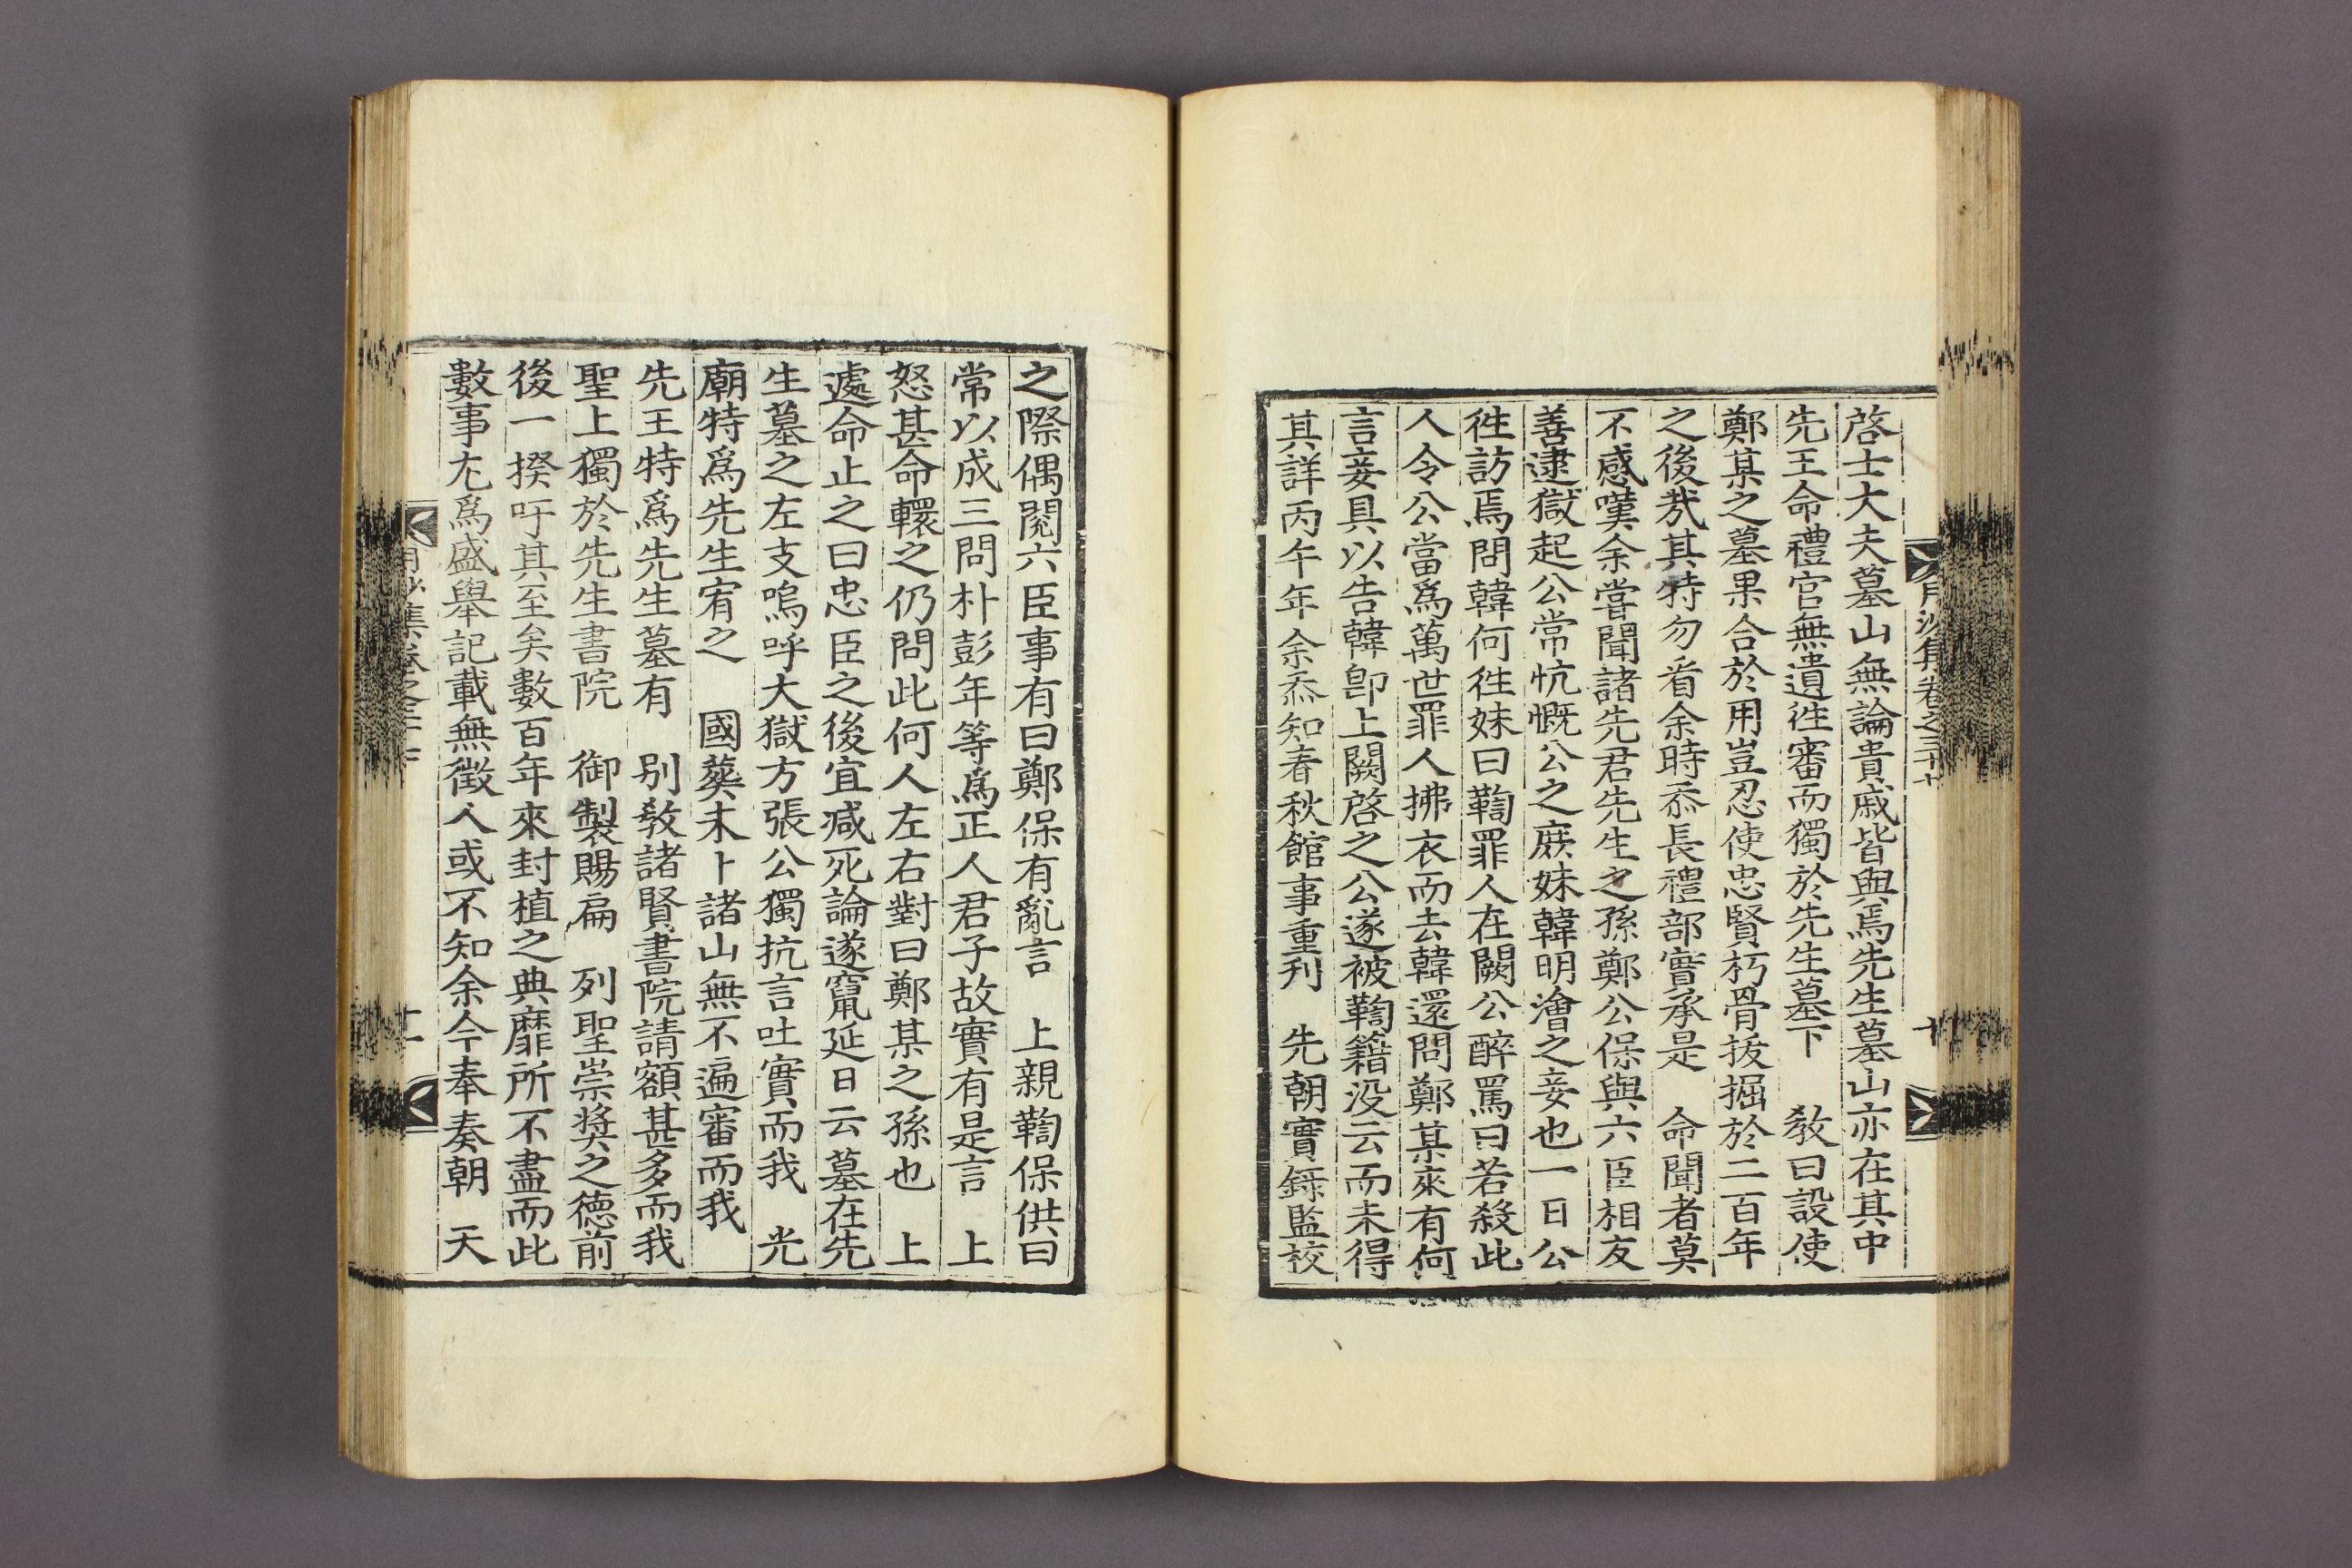 月沙集卷之三十七
十
啓士大夫墓山無論貴戚皆與焉先生墓山亦在其中
先王命禮官無遺徃審而獨於先生墓下 敎曰設使
鄭某之墓果合於用豈忍使忠賢朽骨拔掘於二百年
之後㢤其特勿看余時忝長禮部實承是 命聞者莫
不感嘆余嘗聞諸先君先生之孫鄭公保與六臣相友
善逮獄起公常忼慨公之庶妹韓明澮之妾也一日公
徃訪焉問韓何徃妹曰鞫罪人在闕公醉罵曰若殺此
人令公當爲萬世罪人拂衣而去韓還問鄭某來有何
言妾具以告韓卽上闕啓之公遂被鞫籍没云而未得
其詳丙午年余忝知春秋館事重刋 先朝實錄監校
之際偶閱六臣事有曰鄭保有亂言 上親鞫保供曰
常以成三問朴彭年等爲正人君子故實有是言 上
怒甚命轘之仍問此何人左右對曰鄭某之孫也 上
遽命止之曰忠臣之後宜减死論遂竄延日云墓在先
生墓之左支嗚呼大獄方張公獨抗言吐實而我 光
廟特爲先生宥之 國葬未卜諸山無不遍審而我
先王特爲先生墓有 別敎諸賢書院請額甚多而我
聖上獨於先生書院 御製賜扁 列聖崇奬之德前
後一揆吁其至矣數百年來封植之典靡所不盡而此
數事尤爲盛舉記載無徵人或不知余今奉奏朝 天
月沙集卷之三十七
十一